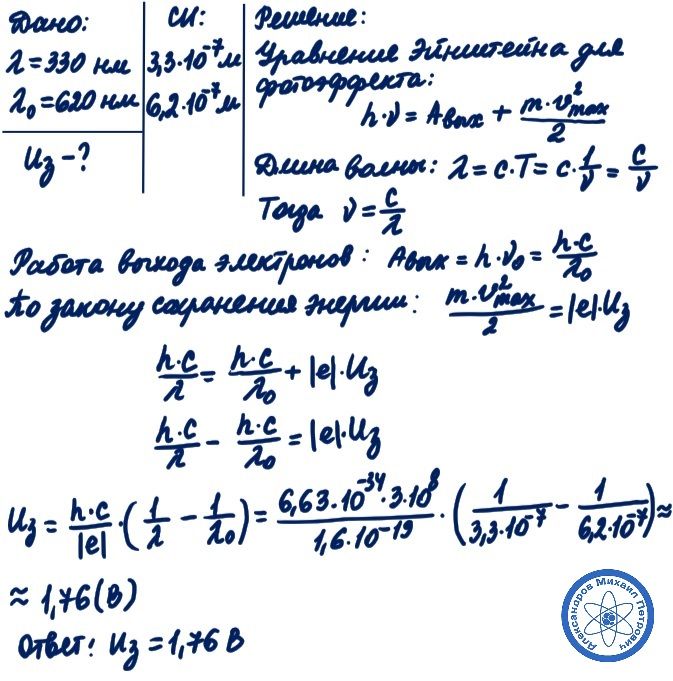 Дано:
λ = 330 нм
λ₀ = 620 нм
Uз - ?
СИ:
3,3·10⁻⁷ м
6,2·10⁻⁷ м
Решение:
Уравнение Эйнштейна для
фотоэффекта:
h·ν = Aвых + m·v²max/2
Длина волны: λ = c·T = c·1/ν = c/ν
Тогда ν = c/λ
Работа выхода электронов: Aвых = h·ν₀ = h·c/λ₀
По закону сохранения энергии: m·v²max/2 = |e|·Uз
h·c/λ = h·c/λ₀ + |e|·Uз
h·c/λ - h·c/λ₀ = |e|·Uз
Uз = h·c/|e| · (1/λ - 1/λ₀) = 6,63·10⁻³⁴·3·10⁸/1,6·10⁻¹⁹ · (1/3,3·10⁻⁷ - 1/6,2·10⁻⁷) ≈
≈ 1,76 (В)
Ответ: Uз = 1,76 В
Александров Михаил Петрович